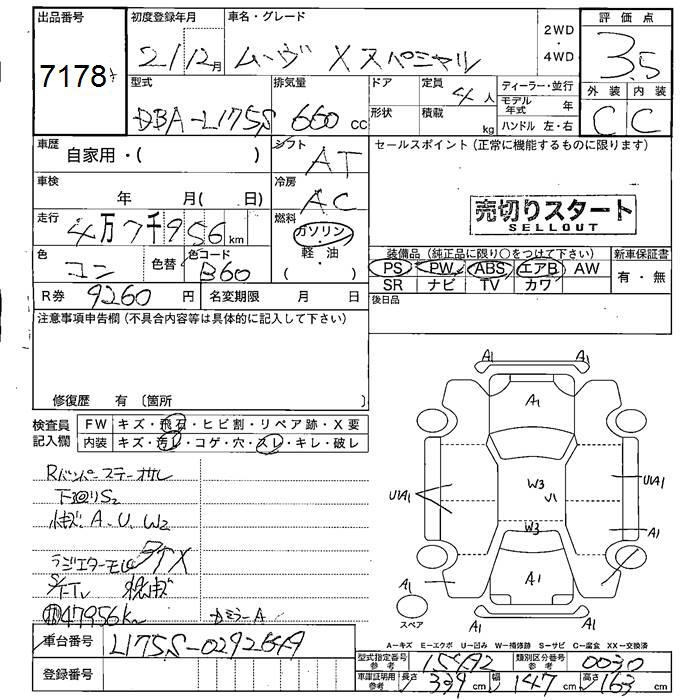 出品番号 初度登録年月 車名・グレード 2WD・4WD 評価点
7178 21/12月 ムーヴ X スペシャル 3.5
型式 排気量 ドア 定員 4人 ディーラー・並行 外装 内装
DBA-L175S 660 cc 形状 積載 kg モデル年式 年 C C
ハンドル 左・右
車歴 自家用・( ) シフト AT セールスポイント(正常に機能するものに限ります)
車検 年 月( 日) 冷房 AC
売切りスタート
SELLOUT
走行 4万7千956km 燃料 ガソリン・軽油 ( )
色 コン 色替 色コード B60
装備品(純正品に限り○をつけて下さい) 新車保証書
PS PW ABS エアB AW 有・無
SR ナビ TV カワ
R券 9260円 名変期限 月 日 後日品
注意事項申告欄(不具合内容等は具体的に記入して下さい)
修復歴 有〔箇所
検査員記入欄 FW キズ・飛石・ヒビ割・リペア跡・X要
内装 キズ・汚レ・コゲ・穴・スレ・キレ・破レ
Rバンパーステーオサレ
下回りS2
小キズ、A、U、W2
S/Tレ
47956km ドミラーA
A1 A1
A1
W3 U1
UA1 UA1
W3 A1
A1 A1
A1 A1
スペア
A-キズ E-エクボ U-凹み W-補修跡 S-サビ C-腐食 XX-交換済
車台番号 L175S-0292659
型式指定番号 参考 15482 類別区分番号 参考 0030
登録番号
車庫証明用 参考 長さ 339cm 幅 147cm 高さ 163cm